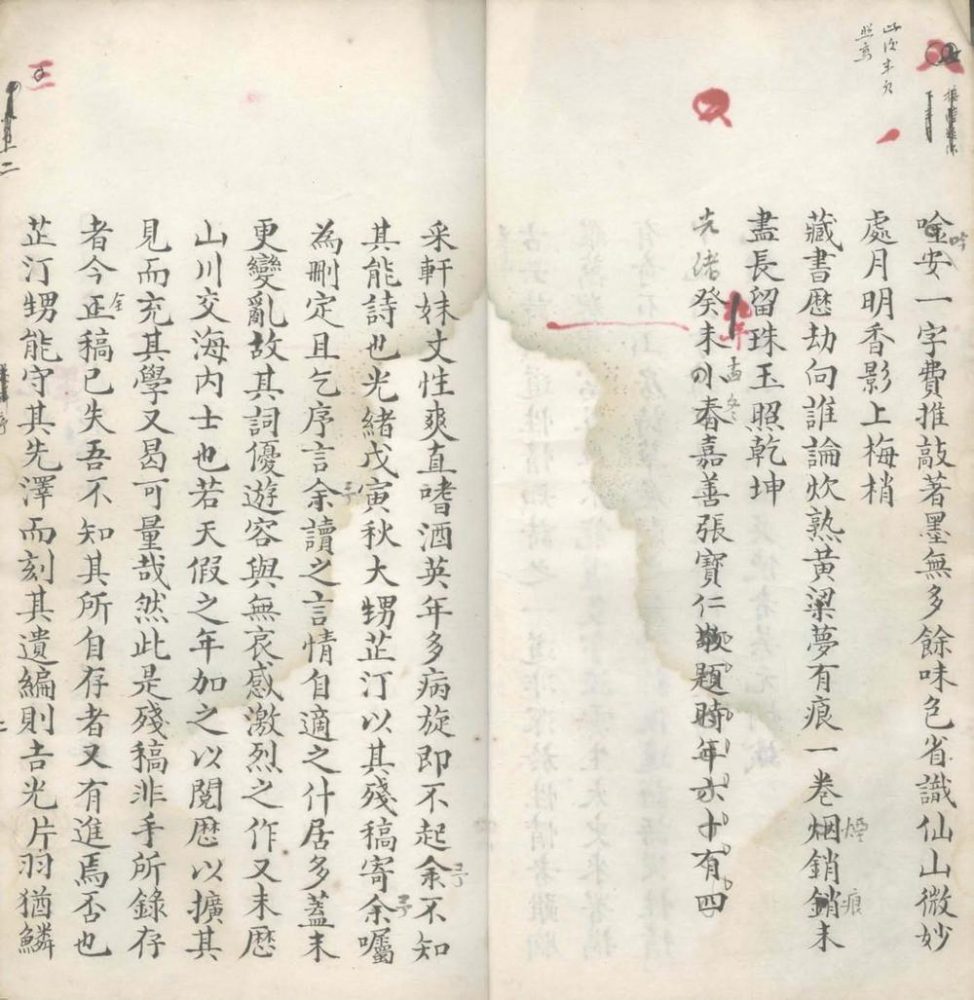 此後半頁
照寫
唫安一字費推敲著墨無多餘味包省識仙山微妙
吟
處月明香影上梅梢
藏書歷劫向誰論炊熟黃粱夢有痕一卷烟銷銷未
煙
痕
盡長留珠玉照乾坤
光緒癸未小春嘉善張寶仁敬題時年六十有四
九年
孟冬
采軒妹丈性爽直嗜酒英年多病旋即不起余不知
予
其能詩也光緒戊寅秋大甥芷汀以其殘稿寄余囑
予
為刪定且乞序言余讀之言情自適之什居多蓋未
予
更變亂故其詞優遊容與無哀感激烈之作又未歷
山川交海内士也若天假之年加之以閱歷以擴其
見而充其學又曷可量哉然此是殘稿非手所錄存
者今正稿已失吾不知其所自存者又有進焉否也
全
芷汀甥能守其先澤而刻其遺編則吉光片羽猶鱗
三
二